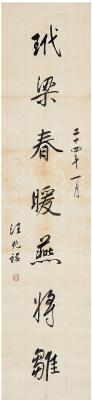 玳梁春暖燕將雛
二十四年一月
汪兆銘